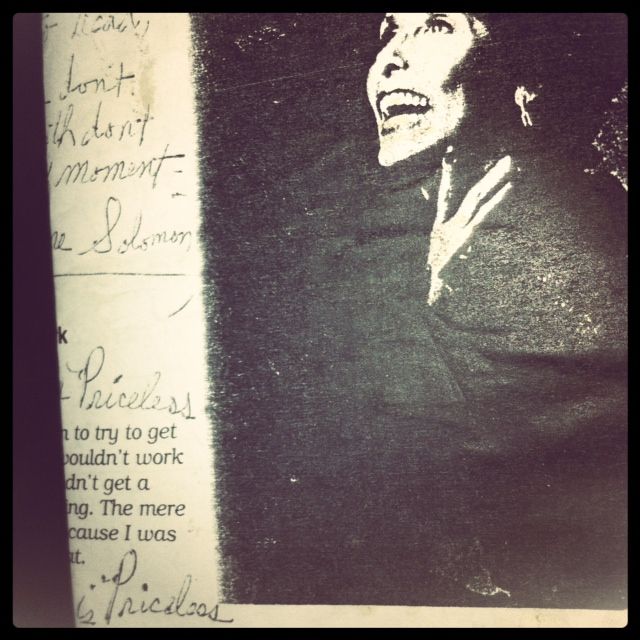 ready,
don't
don't
moment -
Solomon
k
Priceless
to try to get
wouldn't work
dn't get a
ng. The mere
cause I was
at.
is Priceless